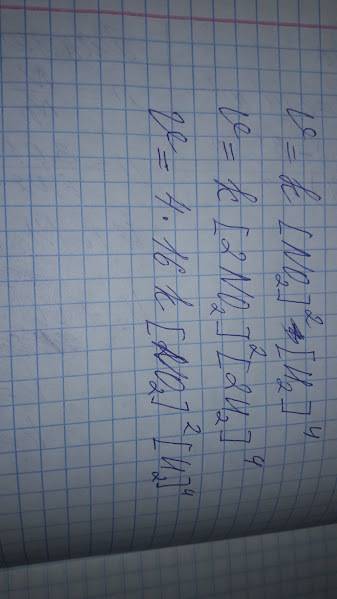 v = k [NO₂]² [H₂]⁴
v = k [2NO₂]² [2H₂]⁴
v = 4 · 16 k [NO₂]² [H₂]⁴